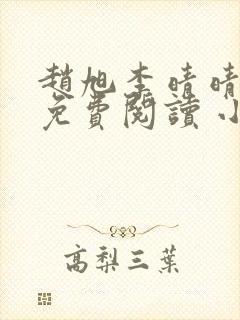 趙旭李晴晴
免費閱讀 小
高梨三葉